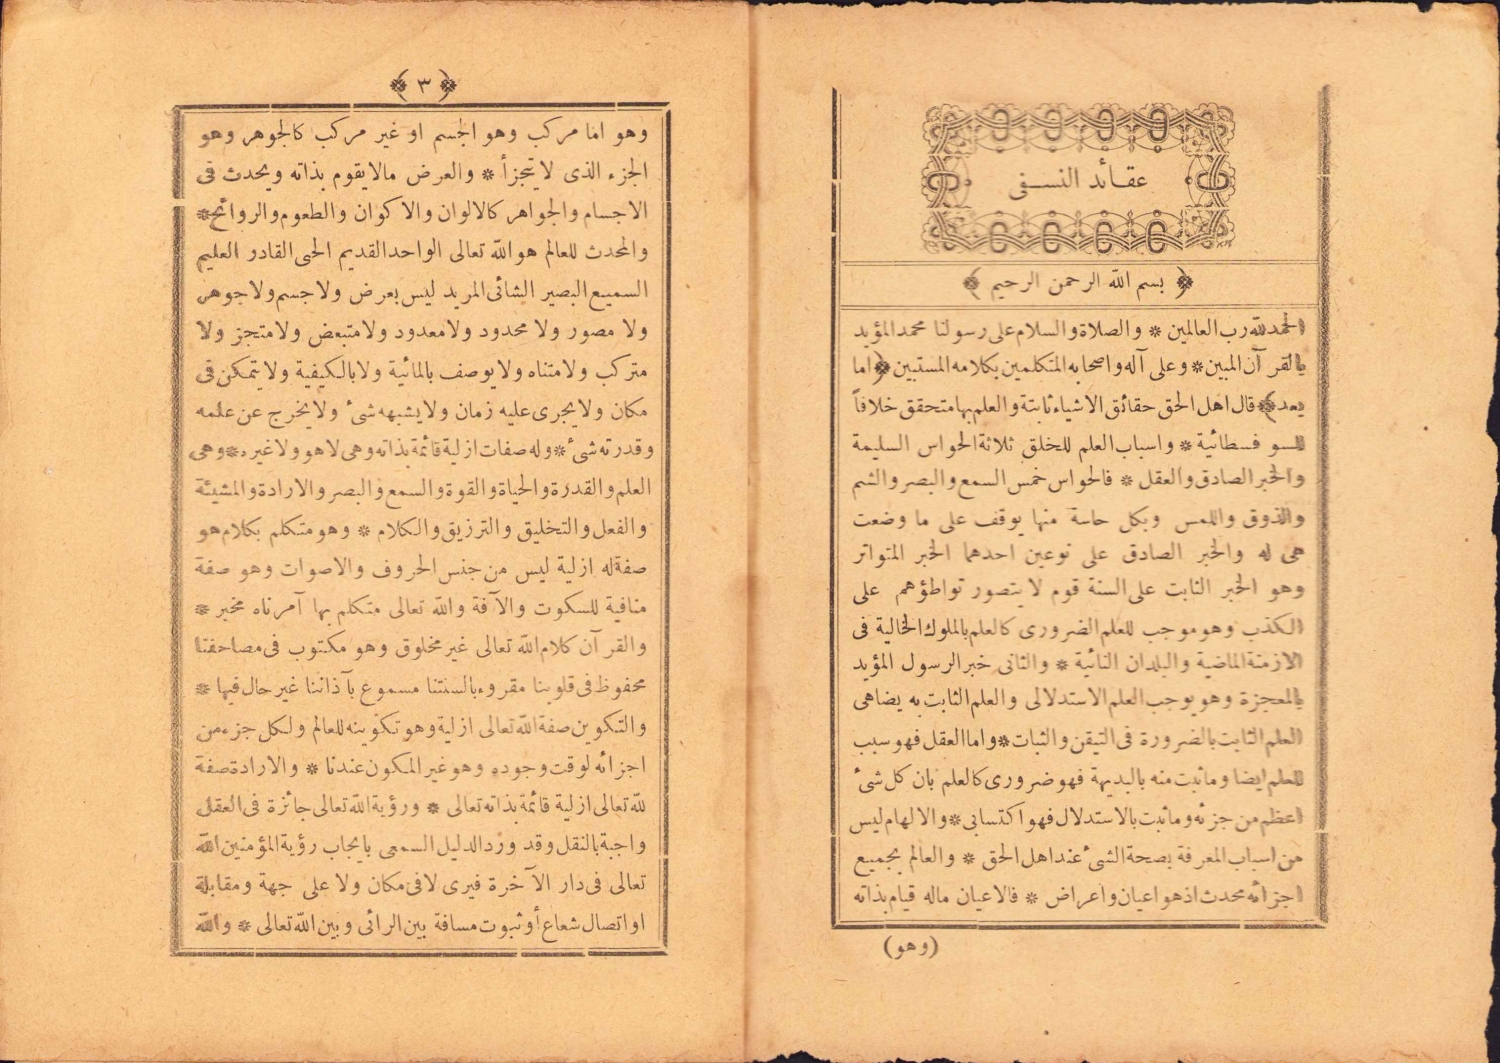 عقائد النسفى
﴿ بسم الله الرحمن الرحيم ﴾
الحمدلله رب العالمين * والصلاة والسلام على رسولنا محمد المؤيد
بالقرآن المبين * وعلى آله واصحابه المتكلمين بكلامه المستبين ﴿ اما
بعد ﴾ * قال اهل الحق حقائق الاشياء ثابتة والعلم بها متحقق خلافاً
للسو فسطائية * واسباب العلم للخلق ثلاثة الحواس السليمة
والخبر الصادق والعقل * فالحواس خمس السمع والبصر والشم
والذوق واللمس وبكل حاسة منها يوقف على ما وضعت
هى له والخبر الصادق على نوعين احدهما الخبر المتواتر
وهو الخبر الثابت على السنة قوم لا يتصور تواطؤهم على
الكذب وهو موجب للعلم الضرورى كالعلم بالملوك الخالية فى
الازمنة الماضية والبلدان النائية * والثانى خبر الرسول المؤيد
بالمعجزة وهو يوجب العلم الاستدلالى والعلم الثابت به يضاهى
العلم الثابت بالضرورة فى التيقن والثبات * واما العقل فهو سبب
للعلم ايضا وما ثبت منه بالبديهة فهو ضرورى كالعلم بان كل شئ
اعظم من جزئه وما ثبت بالاستدلال فهو اكتسابى * والالهام ليس
من اسباب المعرفة بصحة الشئ عند اهل الحق * والعالم بجميع
اجزائه محدث اذ هو اعيان واعراض * فالاعيان ماله قيام بذاته
(وهو)
﴿ ٣ ﴾
وهو اما مركب وهو الجسم او غير مركب كالجوهر وهو
الجزء الذى لا يتجزأ * والعرض مالا يقوم بذاته ويحدث فى
الاجسام والجواهر كالالوان والاكوان والطعوم والروائح *
والمحدث للعالم هو الله تعالى الواحد القديم الحى القادر العليم
السميع البصير الشائى المريد ليس بعرض ولا جسم ولا جوهر
ولا مصور ولا محدود ولا معدود ولا متبعض ولا متجز ولا
متركب ولا متناه ولا يوصف بالمائية ولا بالكيفية ولا يتمكن فى
مكان ولا يجرى عليه زمان ولا يشبهه شئ ولا يخرج عن علمه
وقدرته شئ * وله صفات ازلية قائمة بذاته وهى لا هو ولا غيره * وهى
العلم والقدرة والحياة والقوة والسمع والبصر والارادة والمشيئة
والفعل والتخليق والترزيق والكلام * وهو متكلم بكلام هو
صفة له ازلية ليس من جنس الحروف والاصوات وهو صفة
منافية للسكوت والآفة والله تعالى متكلم بها آمر ناه مخبر *
والقرآن كلام الله تعالى غير مخلوق وهو مكتوب فى مصاحفنا
محفوظ فى قلوبنا مقروء بالسنتنا مسموع بآذاننا غير حال فيها *
والتكوين صفة الله تعالى ازلية وهو تكوينه للعالم ولكل جزء من
اجزائه لوقت وجوده وهو غير المكون عندنا * والارادة صفة
لله تعالى ازلية قائمة بذاته تعالى * ورؤية الله تعالى جائزة فى العقل
واجبة بالنقل وقد ورد الدليل السمعى بايجاب رؤية المؤمنين الله
تعالى فى دار الآخرة فيرى لا فى مكان ولا على جهة ومقابلة
او اتصال شعاع أو ثبوت مسافة بين الرائى وبين الله تعالى * والله